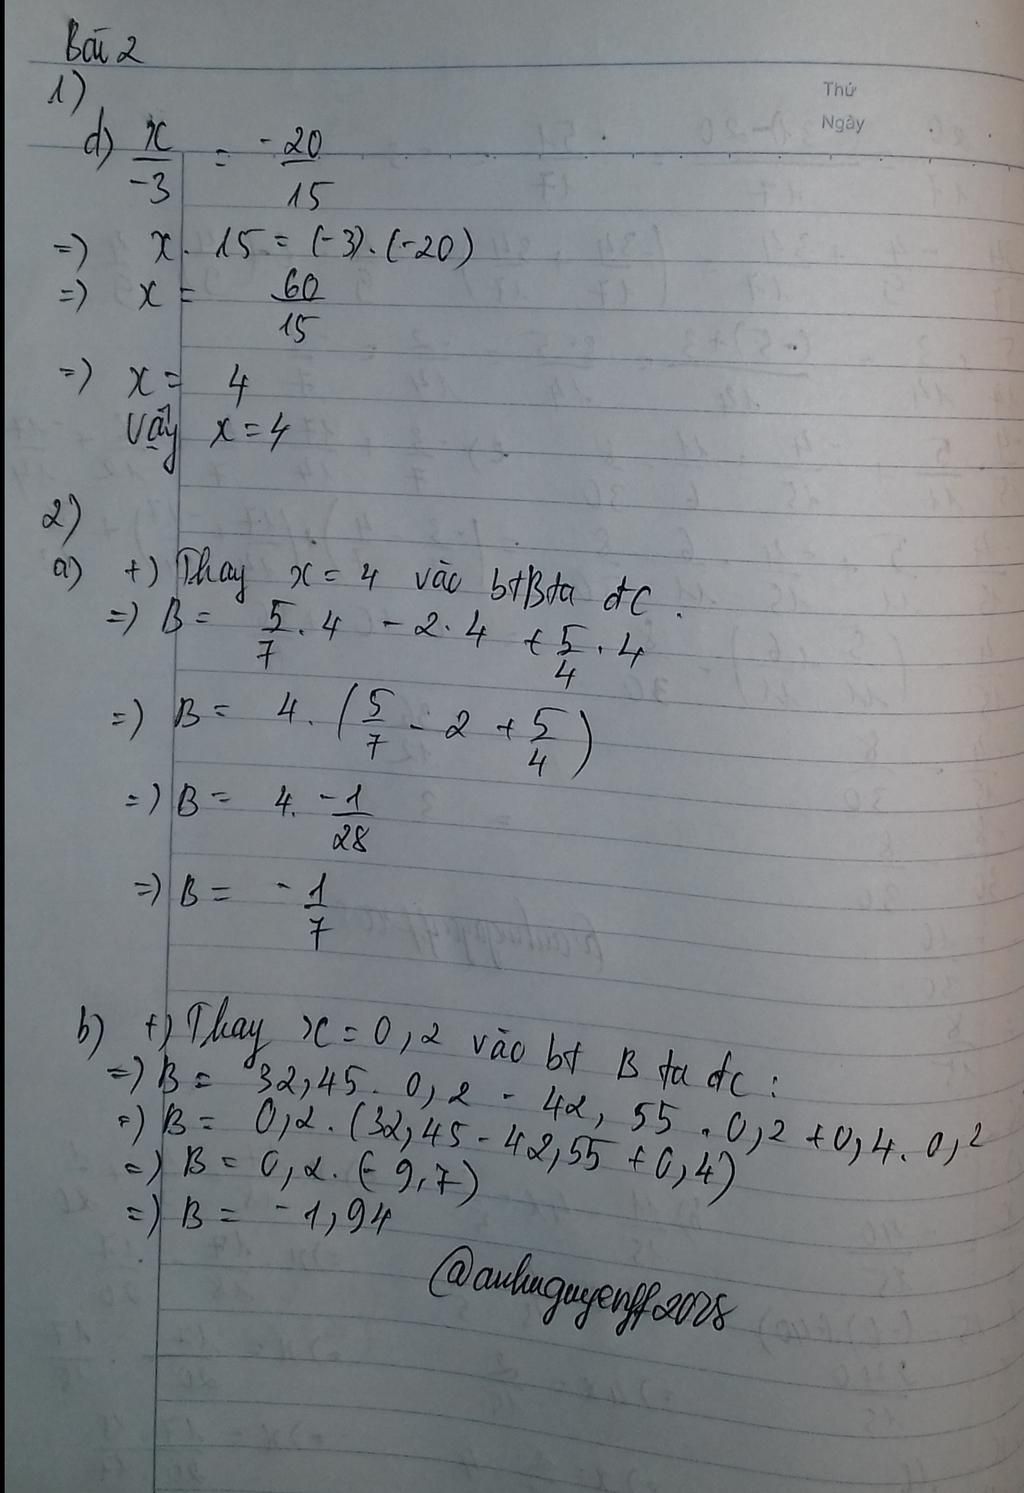 Bài 2
Thứ
Ngày
1)
d) x/-3 = -20/15
=) x . 15 = (-3) . (-20)
=) x = 60/15
=) x = 4
Vậy x = 4
2)
a) +) Thay x = 4 vào bt B ta đc :
=) B = 5/7 . 4 - 2 . 4 + 5/4 . 4
=) B = 4 . (5/7 - 2 + 5/4)
=) B = 4 . -1/28
=) B = -1/7
b) +) Thay x = 0,2 vào bt B ta đc :
=) B = 32,45 . 0,2 - 42,55 . 0,2 + 0,4 . 0,2
=) B = 0,2 . (32,45 - 42,55 + 0,4)
=) B = 0,2 . (-9,7)
=) B = -1,94